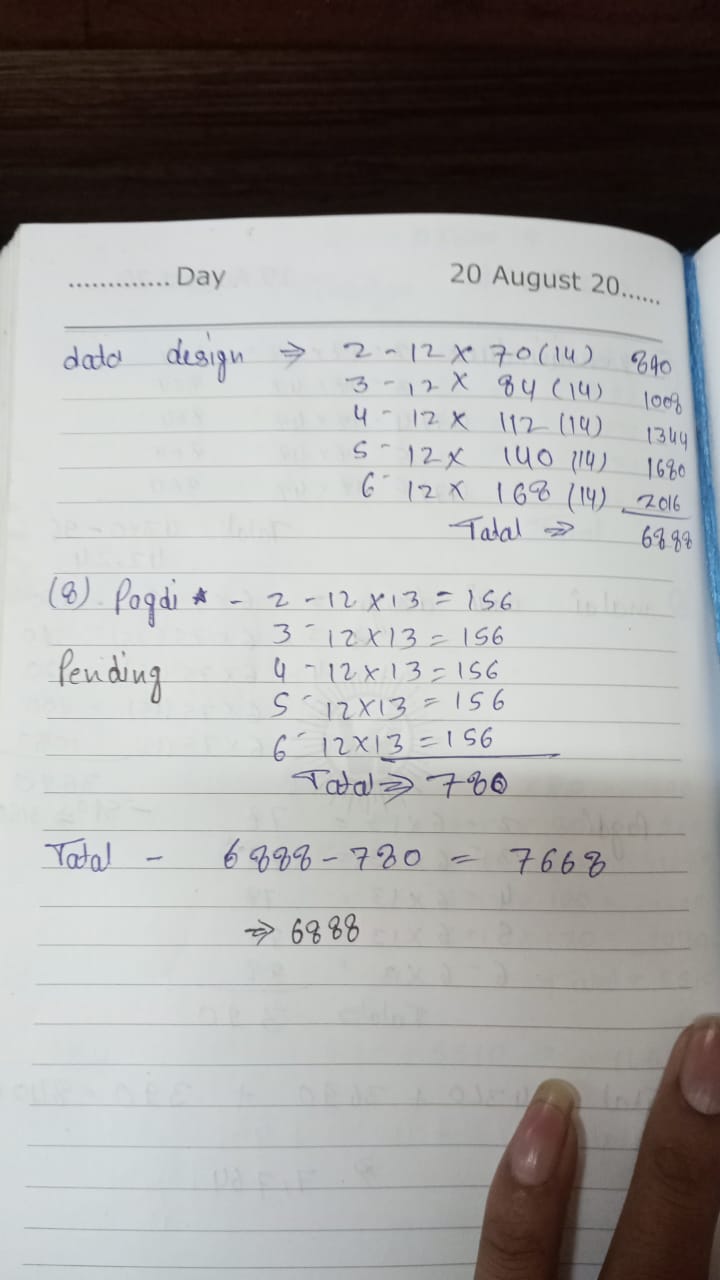 ............. Day 20 August 20......
data design ⇒ 2 - 12 × 70 (14) 840
3 - 12 × 84 (14) 1008
4 - 12 × 112 (14) 1344
5 - 12 × 140 (14) 1680
6 - 12 × 168 (14) 2016
Total ⇒ 6888
(8). Pagdi * - 2 - 12 × 13 = 156
3 - 12 × 13 = 156
Pending 4 - 12 × 13 = 156
5 - 12 × 13 = 156
6 - 12 × 13 = 156
Total ⇒ 780
Total - 6888 - 780 = 7668
⇒ 6888